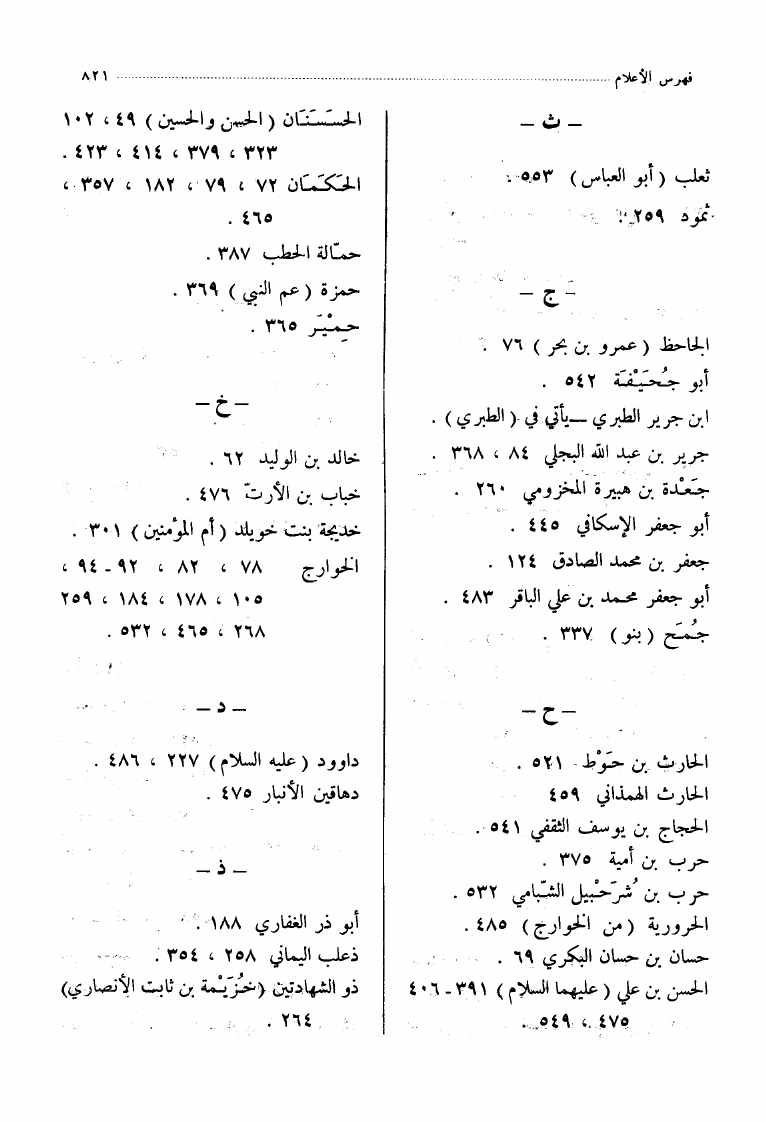 فهرس الأعلام ٨٢١
– ث –
ثعلب (أبو العباس) ٥٥٣ .
ثمود ٢٥٩ .
– ج –
الجاحظ (عمرو بن بحر) ٧٦ .
أبو جُحَيْفَة ٥٤٢ .
ابن جرير الطبري — يأتي في (الطبري) .
جرير بن عبد الله البجلي ٨٤ ، ٣٦٨ .
جَعْدة بن هبيرة المخزومي ٢٦٠ .
أبو جعفر الإسكافي ٤٤٥ .
جعفر بن محمد الصادق ١٢٤ .
أبو جعفر محمد بن علي الباقر ٤٨٣ .
جُمَح (بنو) ٣٣٧ .
– ح –
الحارث بن حَوْط ٥٢١ .
الحارث الهمذاني ٤٥٩
الحجاج بن يوسف الثقفي ٥٤١ .
حرب بن أمية ٣٧٥ .
حرب بن شُرَحْبيل الشّبامي ٥٣٢ .
الحرورية (من الخوارج) ٤٨٥ .
حسان بن حسان البكري ٦٩ .
الحسن بن علي (عليهما السلام) ٣٩١ - ٤٠٦
٤٧٥ ، ٥٤٩ .
الحسَنَان (الحسن والحسين) ٤٩ ، ١٠٢
٣٢٣ ، ٣٧٩ ، ٤١٤ ، ٤٢٣ .
الحَكَمان ٧٢ ، ٧٩ ، ١٨٢ ، ٣٥٧ ،
٤٦٥ .
حمّالة الحطب ٣٨٧ .
حمزة (عم النبي) ٣٦٩ .
حِمْيَر ٣٦٥ .
– خ –
خالد بن الوليد ٦٢ .
خباب بن الأرتّ ٤٧٦ .
خديجة بنت خويلد (أم المؤمنين) ٣٠١ .
الخوارج ٧٨ ، ٨٢ ، ٩٢ - ٩٤ ،
١٠٥ ، ١٧٨ ، ١٨٤ ، ٢٥٩
٢٦٨ ، ٤٦٥ ، ٥٣٢ .
– د –
داوود (عليه السلام) ٢٢٧ ، ٤٨٦ .
دهاقين الأنبار ٤٧٥ .
– ذ –
أبو ذر الغفاري ١٨٨ .
ذعلب اليماني ٢٥٨ ، ٣٥٤ .
ذو الشهادتين (خُزَيْمة بن ثابت الأنصاري)
٢٦٤ .